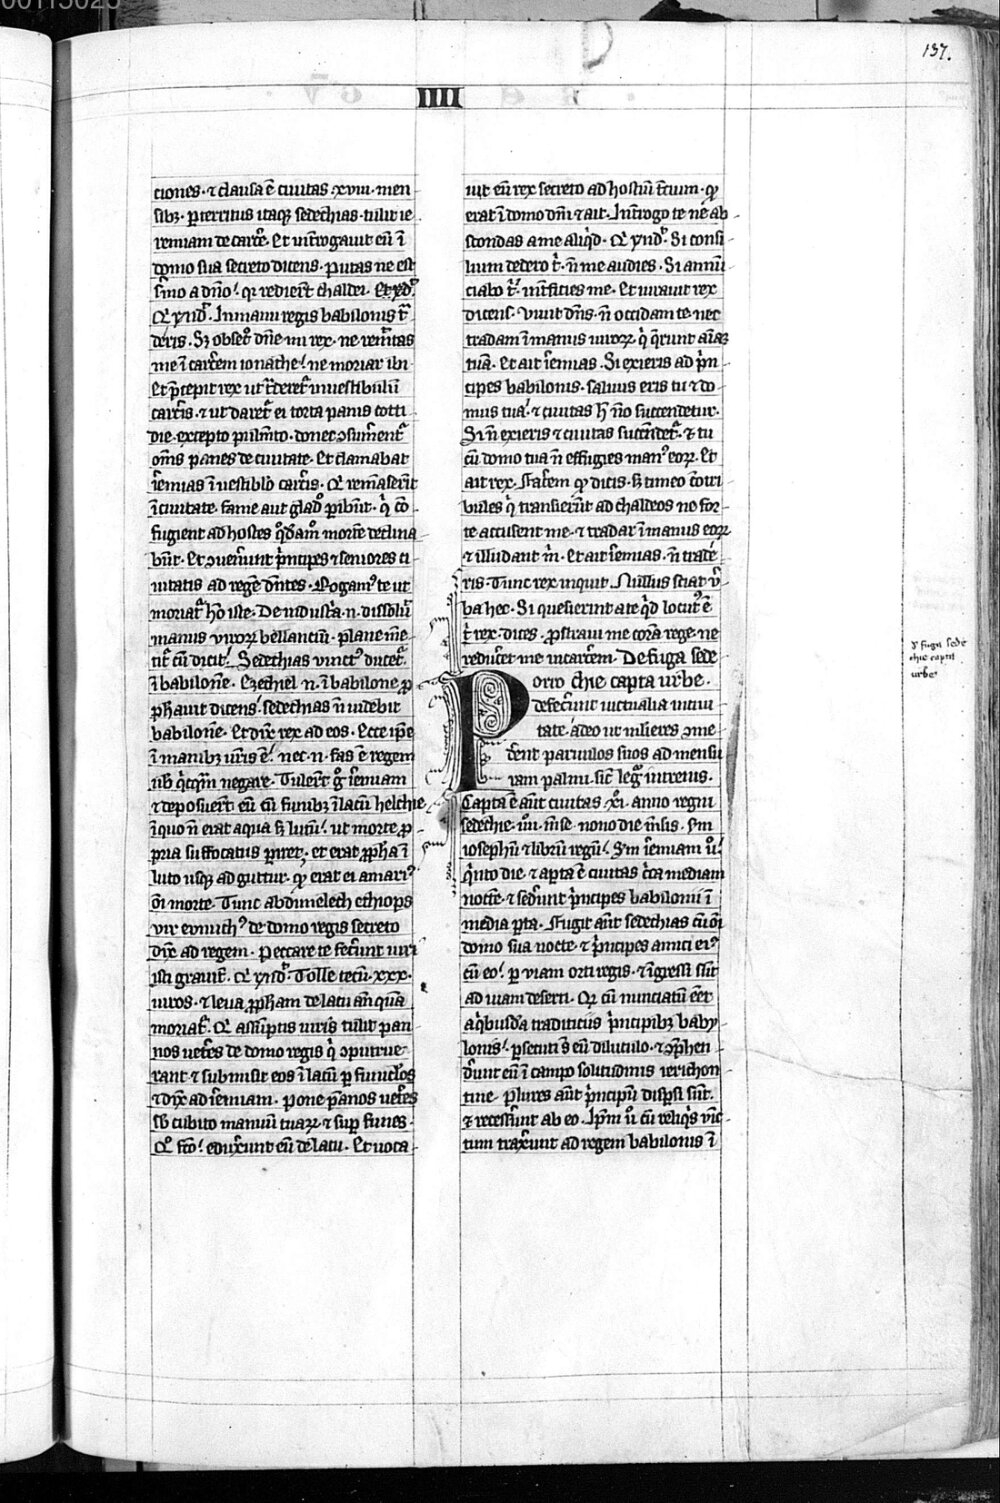 137.
IIII
ciones · ⁊ clausa ē ciuitas · xviii · men
sibꝫ · ꝑterritus itaqꝫ sedechias · tulit ie
remiam de carc̄e · Et int̄rogauit eū ī
domo sua secreto dicens · putas ne est
s̄mo a dn̄o · qr̄ redier̄t chaldei · Et
In manu regis babilonis t̄
deris · Sꝫ obsec̄ dn̄e mi rex · ne remittas
me ī carcerem ionathe · ne moriar ibi
Et p̄cepit rex ut t̄deret̄ in uestibulū
carc̄is · ⁊ ut daret̄ ei torta panis cotti
die · excepto pulm̄to · donec ꝯsumerent̄
om̄s panes de ciuitate · Et clamabat
ieremias ī uestiblo carc̄is · Q̄ remāserīt
ī ciuitate · fame aut glad̄o ꝑibūt · q̄ cō
fugient ad hostes q̊dam̊ morte declina
būt · Et ꝯuenerunt pͥncipes ⁊ seniores ci
uitatis ad regē dn̄tes · Rogam᷒ te ut
moriat̄ hō iste · De industia · n · dissoluit
manus viroꝝ bellantiū · plane m̄e
tit̄ cū dicit · Sedechias vinct᷒ ducet̄
ī babilonē · Ezechiel · n · ī babilone ꝓ
phauit dicens · sedechias n̄ uidebit
babilonē · Et dix̄ rex ad eos · Ecce ip̄e
ī manibꝫ ur̄is ē · nec · n · fas ē regem
uob̄ qͥcq̄m negare · Tuler̄t g̊ ieremiam
⁊ deposuer̄t eū cū funibꝫ ī lacū helchie
ī quo n̄ erat aqua sꝫ lutū · ut morte ꝓ
pria suffocatus ꝑiret · et erat ꝓpha ī
luto usqꝫ ad guttur · qꝫ erat ei amari᷒
ōi morte · Tunc abdimelech ethiops
vir eunuch᷒ de domo regis secreto
dix̄ ad regem · Peccare te fecerunt uiri
isti grauit̄ · Tolle tecū · xxx ·
uiros · ⁊ leua ꝓpham de lacu an̄ quā
moriat̄ · Q̄ assūptis uiris tulit pan
nos uet̄es de domo regis q̄ ꝯputrue
rant ⁊ submisit eos ī lacū ꝑ funiclos
⁊ dix̄ ad ieremiam · pone pānos uet̄es
sb̄ cubito manuū tuaꝝ ⁊ suꝑ funes ·
Q̊ fc̄o · eduxerunt eū de lacu · Et uoca
uit eū rex secreto ad hostiū t̄cium · qꝫ
erat ī domo dn̄i ⁊ ait · Int̄rogo te ne ab
scondas a me aliqͥd · Si consi
lium dedero t̄ · n̄ me audies · Si annū
ciabo t̄ · int̄ficies me · Et iurauit rex
dicens · Viuit dn̄s · n̄ occidam te · nec
tradam ī manus uiroꝝ · qͥ q̄runt aīaꝫ
tuā · Et ait ieremias · Si exieris ad pͥn
cipes babilonis · saluus eris tu ⁊ do
mus tua · ⁊ ciuitas h̄ nō succendetur ·
Si n̄ exieris ⁊ ciuitas succendet̄ · ⁊ tu
cū domo tua n̄ effugies man᷒ eoꝝ · Et
ait rex · Facerem qꝫ dicis · sꝫ timeo cōtri
bules qͥ transier̄t ad chaldeos ne for
te accusent me · ⁊ tradar ī manus eoꝝ
⁊ illudant m̄ · Et ait ieremias · n̄ trade
ris · Tunc rex inquit · Nullus sciat v̄
ba hec · Si quesierint a te qͥd locut᷒ ē
t̄ rex · dices · ꝓstraui me corā rege · ne
reduceret me in carcerem · De fuga sede
Porro chie capta vrbe ·
defecerunt uictualia in ciui
tate · adeo ut mlieres ꝯme
derent paruulos suos ad mensu
ram palmi · sic̄ leg̊ in trenis ·
Capta ē aūt ciuitas · xi · anno regni
sedechie · iiii · mēse nono die mēsis · sm̄
iosephū ⁊ librū regū · Sm̄ ieremiam ů
qͥnto die · ⁊ aꝑta ē ciuitas cͥca mediam
noctē · ⁊ sederunt pͥncipes babilonii ī
media porta · Fugit aūt sedechias cū ōi
domo sua nocte · ⁊ pͥncipes amici ei᷒
cū eo · ꝑ viam orti regis · ⁊ īgressi sūt
ad uiam deserti · Q̊ cū nunciatū eēt
a qͥbusdā tradituciis pͥncipibꝫ baby
lonis · ꝑsecuti s̄ eū diluculo · ⁊ ꝯp̄hen
derunt eū ī campo solitudinis ierichon
tine · Plures aūt pͥncipū disꝑsi sūt ·
⁊ recesserunt ab eo · Ip̄m ů cū reliqͥs vīc
tum traxerunt ad regem babilonis ī
fuga sede
chie capta
urbe